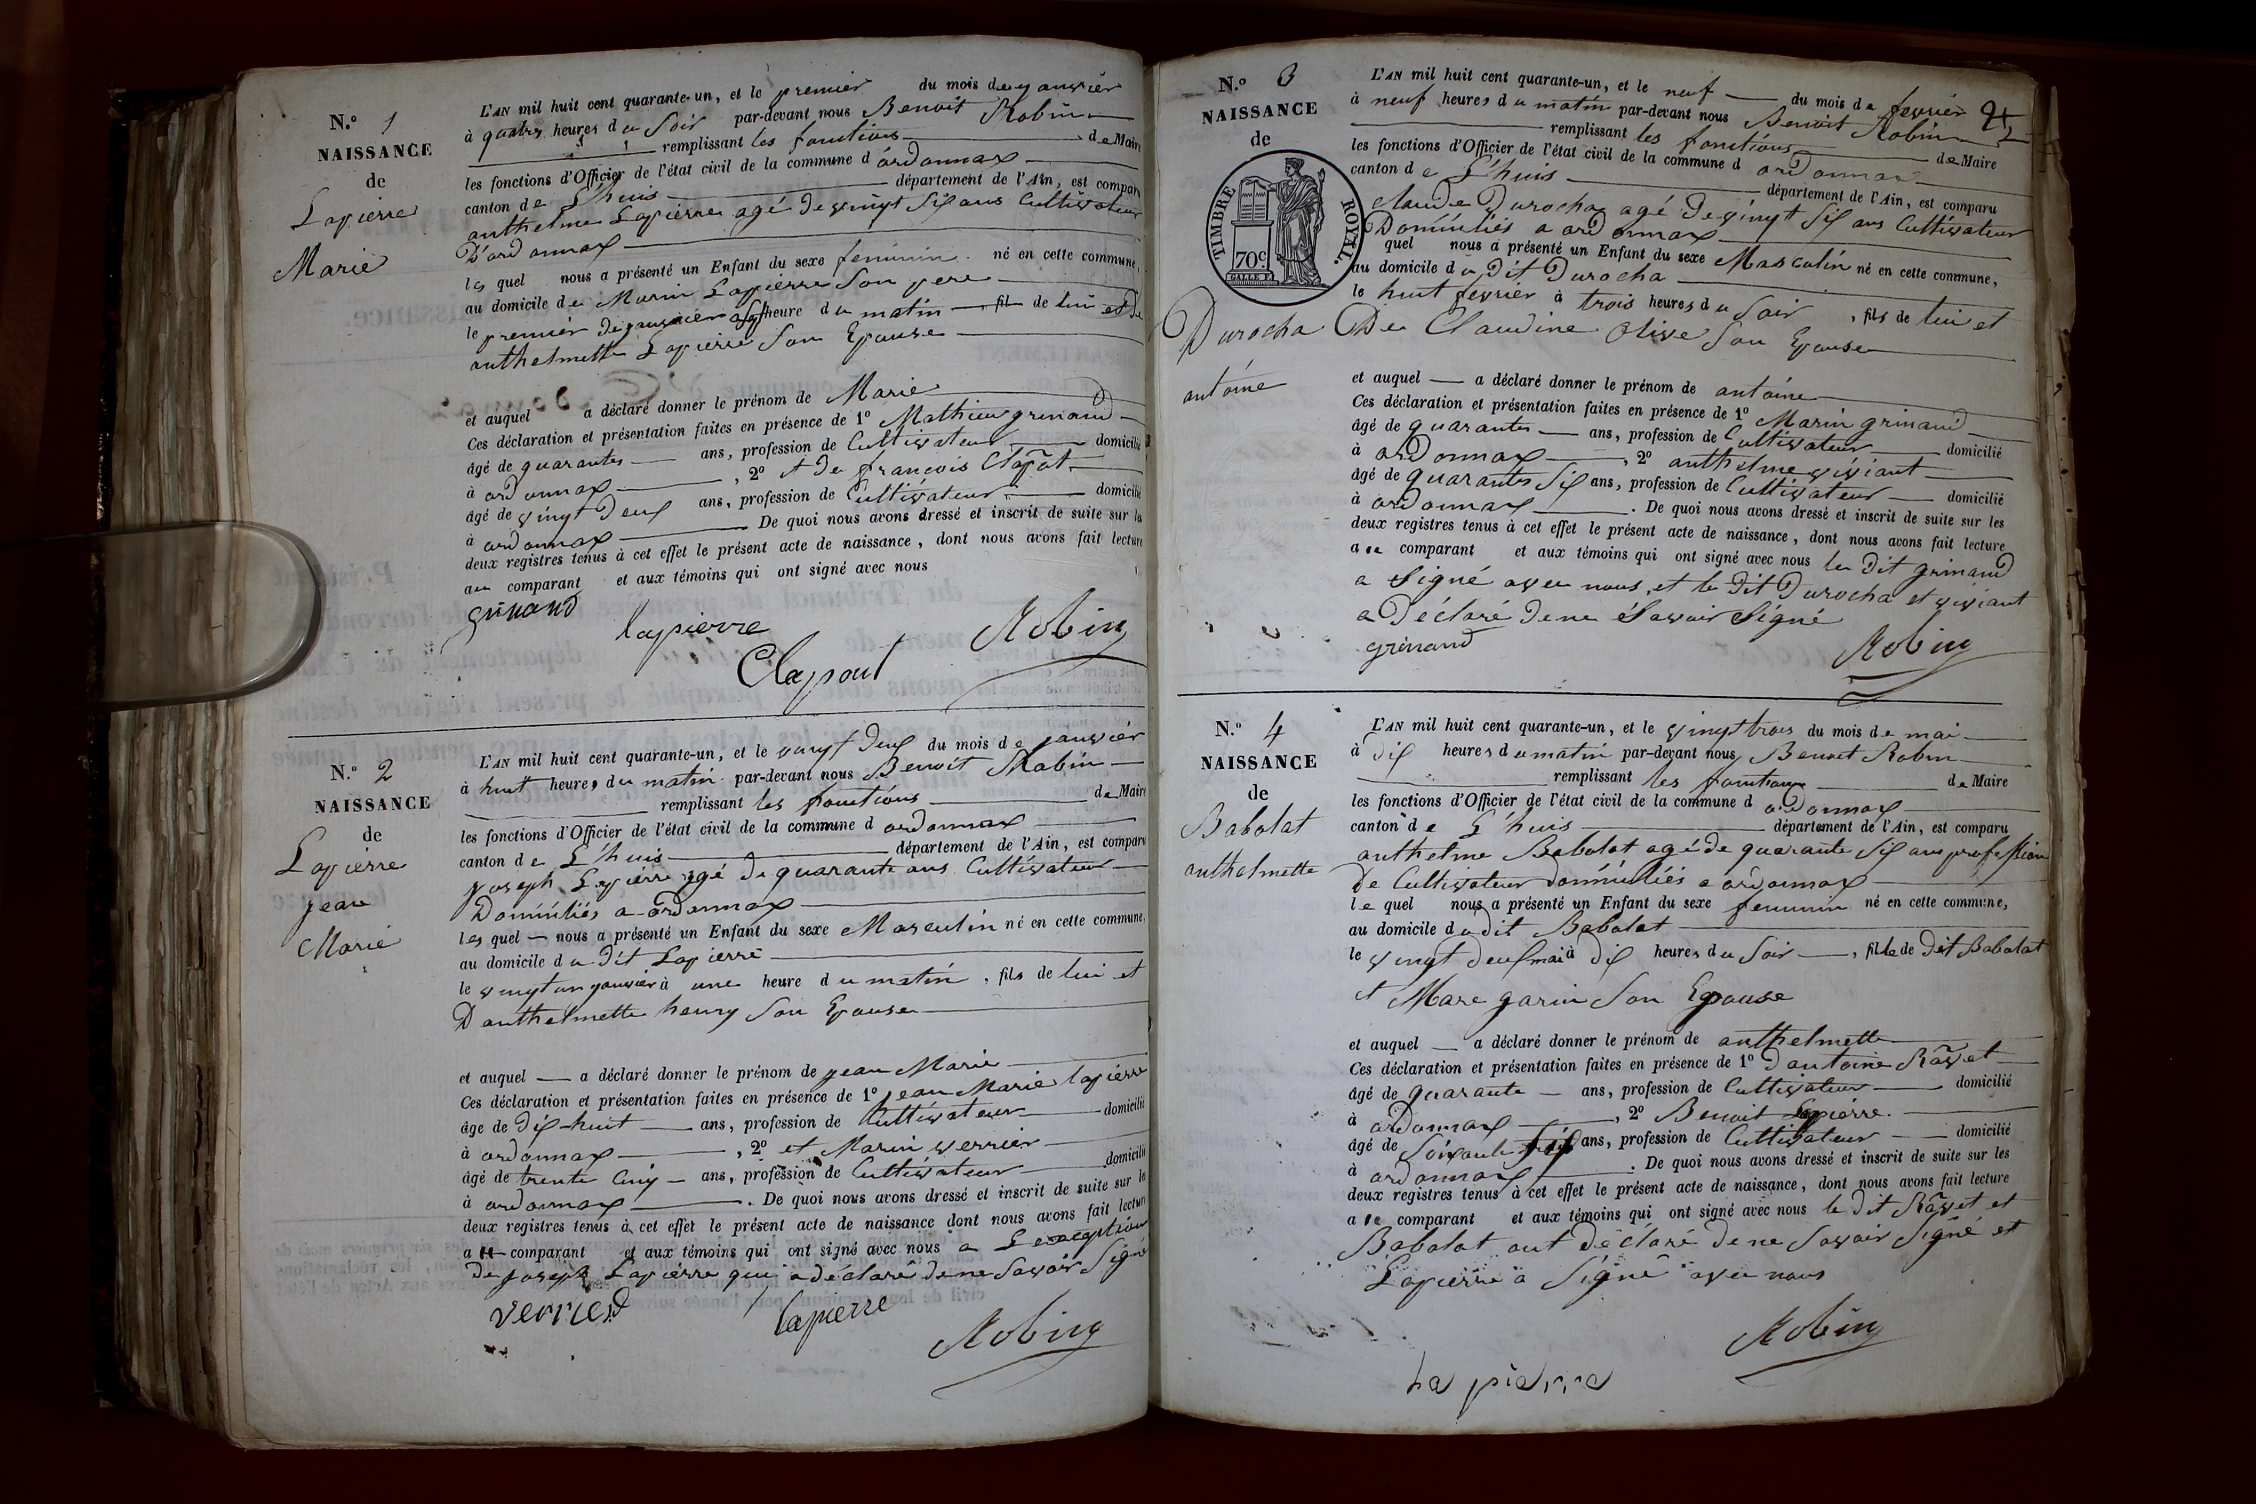 N.o 1
NAISSANCE
de
Lapierre
Marie
L'AN mil huit cent quarante-un, et le premier du mois de janvier
à quatre heures du Soir par-devant nous Benoit Robin
remplissant les fonctions de Maire
les fonctions d'Officier de l'état civil de la commune d'ordonnax
canton de L'huis département de l'Ain, est comparu
anthelme Lapierre agé de vingt Six ans Cultivateur
D'ordonnax
le quel nous a présenté un Enfant du sexe feminin né en cette commune,
au domicile de Marin Lapierre Son pere
le premier de janvier heure du matin fil de lui et de
anthelmette Lapierre Son Epouse
et auquel a déclaré donner le prénom de Marie
Ces déclaration et présentation faites en présence de 1o Mathieu grinand
âgé de quarante ans, profession de Cultivateur domicilié
à ordonnax, 2o et de francois Clapot
âgé de vingt Deux ans, profession de Cultivateur domicilié
à ordonnax. De quoi nous avons dressé et inscrit de suite sur les
deux registres tenus à cet effet le présent acte de naissance, dont nous avons fait lecture
au comparant et aux témoins qui ont signé avec nous
grinand
lapierre
Robin
Clapout
N.o 2
NAISSANCE
de
Lapierre
jean
Marie
L'AN mil huit cent quarante-un, et le vingt Deux du mois de janvier
à huit heures du matin par-devant nous Benoit Robin
remplissant les fonctions de Maire
les fonctions d'Officier de l'état civil de la commune d ordonnax
canton de L'huis département de l'Ain, est comparu
joseph Lapierre agé de quarante ans Cultivateur
Domiciliés a ordonnax
le quel nous a présenté un Enfant du sexe Masculin né en cette commune,
au domicile du Dit Lapierre
le vingt un janvier à une heure du matin, fils de lui et
D'anthelmette henry Son Epouse
et auquel a déclaré donner le prénom de jean Marie
Ces déclaration et présentation faites en présence de 1o jean Marie lapierre
âge de Dix-huit ans, profession de Cultivateur domicilié
à ordonnax, 2o et Marin verrier
âgé de trente Cinq ans, profession de Cultivateur domicilié
à ordonnax. De quoi nous avons dressé et inscrit de suite sur les
deux registres tenus à cet effet le présent acte de naissance dont nous avons fait lecture
a comparant et aux témoins qui ont signé avec nous a L'exception
de joseph Lapierre qui a déclaré de ne Savoir Signé
verrier
lapierre
Robin
N.o 3
NAISSANCE
de
TIMBRE ROYAL.
70c
GALLE F.
Durocha
antoine
L'AN mil huit cent quarante-un, et le neuf du mois de fevrier
à neuf heures du matin par-devant nous Benoit Robin
remplissant les fonctions de Maire
les fonctions d'Officier de l'état civil de la commune d ordonnax
canton de L'huis département de l'Ain, est comparu
claude Durocha agé De vingt Six ans Cultivateur
Domiciliés a ordonnax
quel nous a présenté un Enfant du sexe Masculin né en cette commune,
au domicile du Dit Durocha
le huit fevrier à trois heures du Soir, fils de lui et
De Claudine olive Son Epouse
et auquel a déclaré donner le prénom de antoine
Ces déclaration et présentation faites en présence de 1o Marin grinand
âgé de quarante ans, profession de Cultivateur domicilié
à ordonnax, 2o anthelme viviant
âgé de quarante Six ans, profession de Cultivateur domicilié
à ordonnax. De quoi nous avons dressé et inscrit de suite sur les
deux registres tenus à cet effet le présent acte de naissance, dont nous avons fait lecture
au comparant et aux témoins qui ont signé avec nous le Dit grinand
a Signé avec nous, et le Dit Durocha et viviant
a Déclaré De ne Savoir Signé
grinand
Robin
N.o 4
NAISSANCE
de
Babolat
anthelmette
L'AN mil huit cent quarante-un, et le vingt trois du mois de mai
à Dix heures du matin par-devant nous Benoit Robin
remplissant les fonctions de Maire
les fonctions d'Officier de l'état civil de la commune d ordonnax
canton de L'huis département de l'Ain, est comparu
anthelme Babolat agé de quarante Six ans profession
De Cultivateur Domiciliés a ordonnax
le quel nous a présenté un Enfant du sexe feminin né en cette commune,
au domicile du dit Babolat
le vingt Deux mai à Dix heures du Soir, fille de Dit Babolat
et Marie garin Son Epouse
et auquel a déclaré donner le prénom de anthelmette
Ces déclaration et présentation faites en présence de 1o D'antoine Ravet
âgé de quarante ans, profession de Cultivateur domicilié
à ordonnax, 2o Benoit Lapierre
âgé de Soixante Six ans, profession de Cultivateur domicilié
à ordonnax. De quoi nous avons dressé et inscrit de suite sur les
deux registres tenus à cet effet le présent acte de naissance, dont nous avons fait lecture
au comparant et aux témoins qui ont signé avec nous le Dit Ravet et
Babolat ont Déclaré De ne Savoir Signé et
Lapierre a Signé avec nous
Robin
La pierre